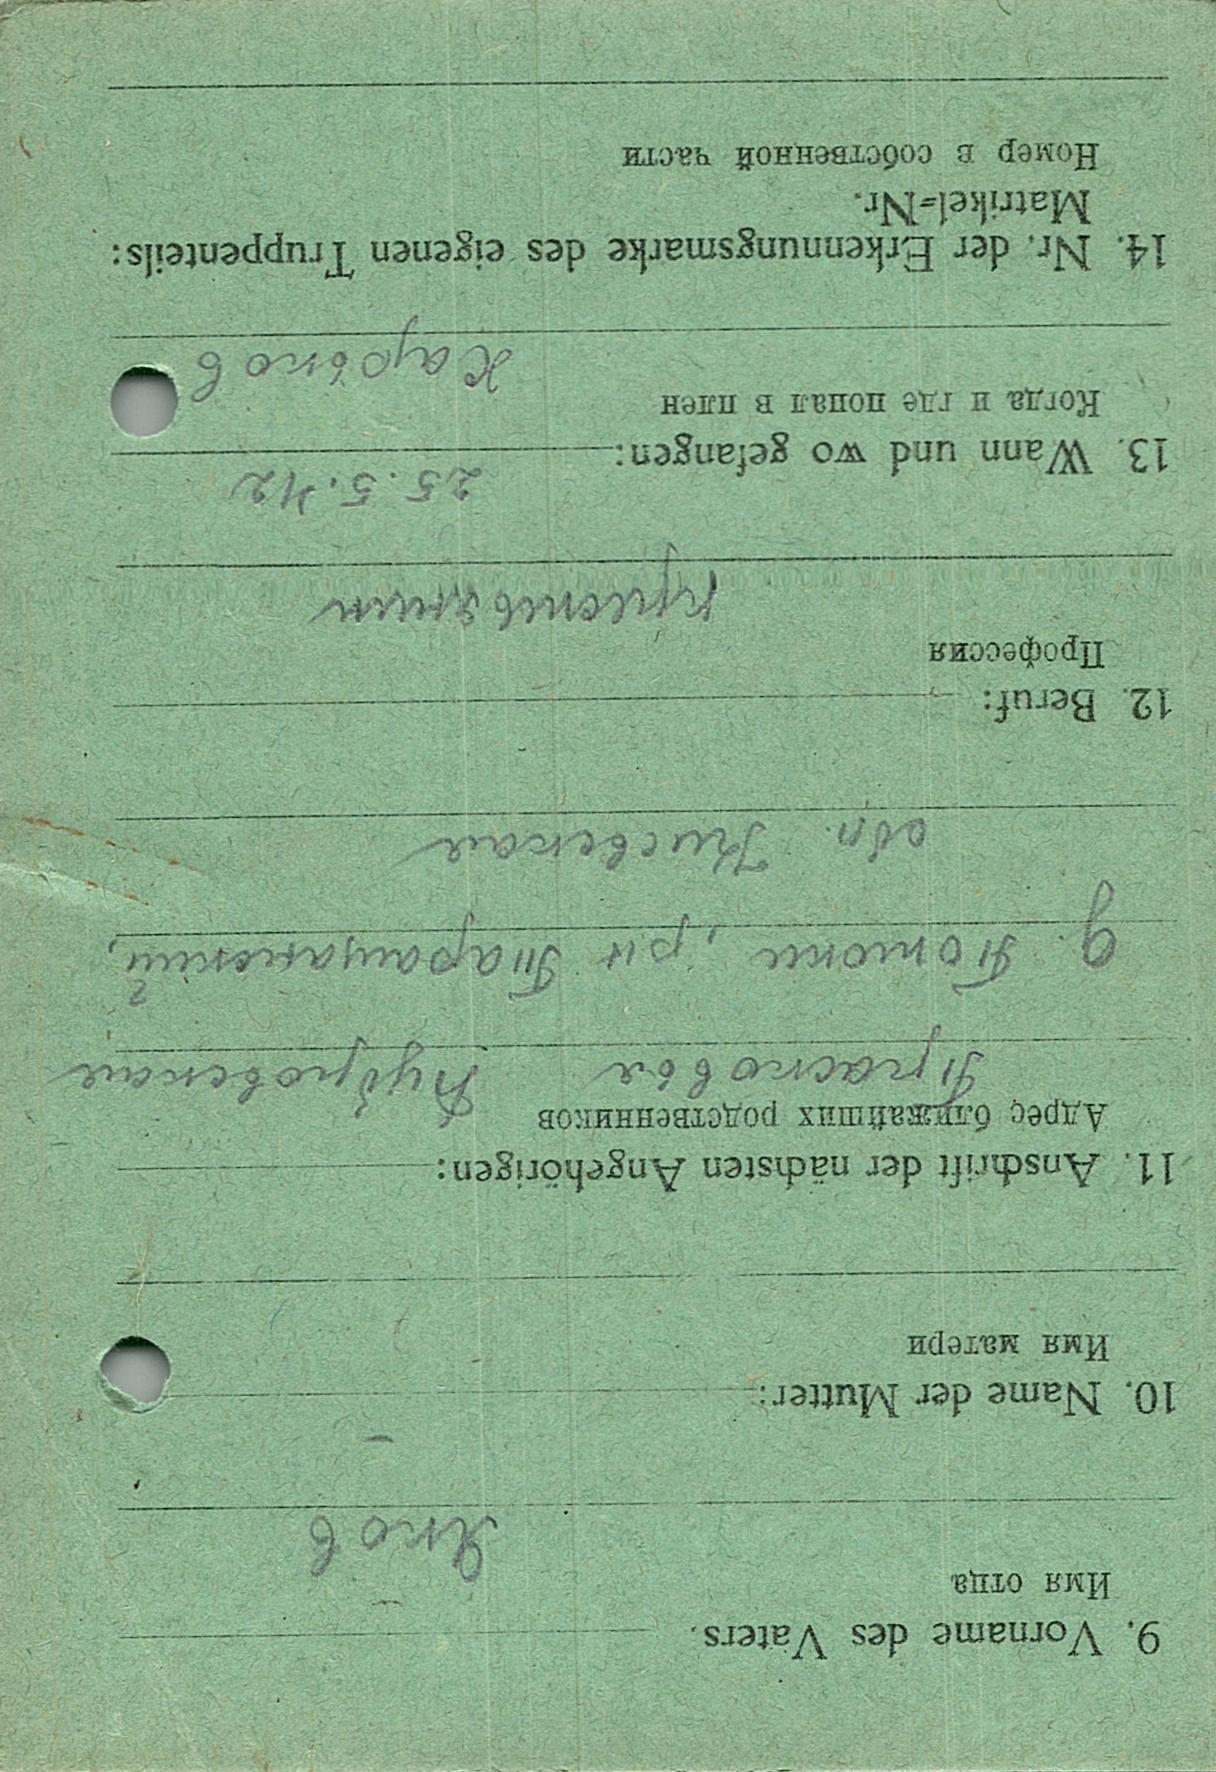 9. Vorname des Vaters.
Имя отца
Яков
10. Name der Mutter:
Имя матери
–
11. Anschrift der nächsten Angehörigen:
Адрес ближайших родственников
Прасковья Кудровская
д. Потоки, рн Таращанский,
обл. Киевская
12. Beruf:
Профессия
кристьянин
13. Wann und wo gefangen:
25.5.42
Когда и где попал в плен
Харьков
14. Nr. der Erkennungsmarke des eigenen Truppenteils:
Matrikel=Nr.
Номер в собственной части